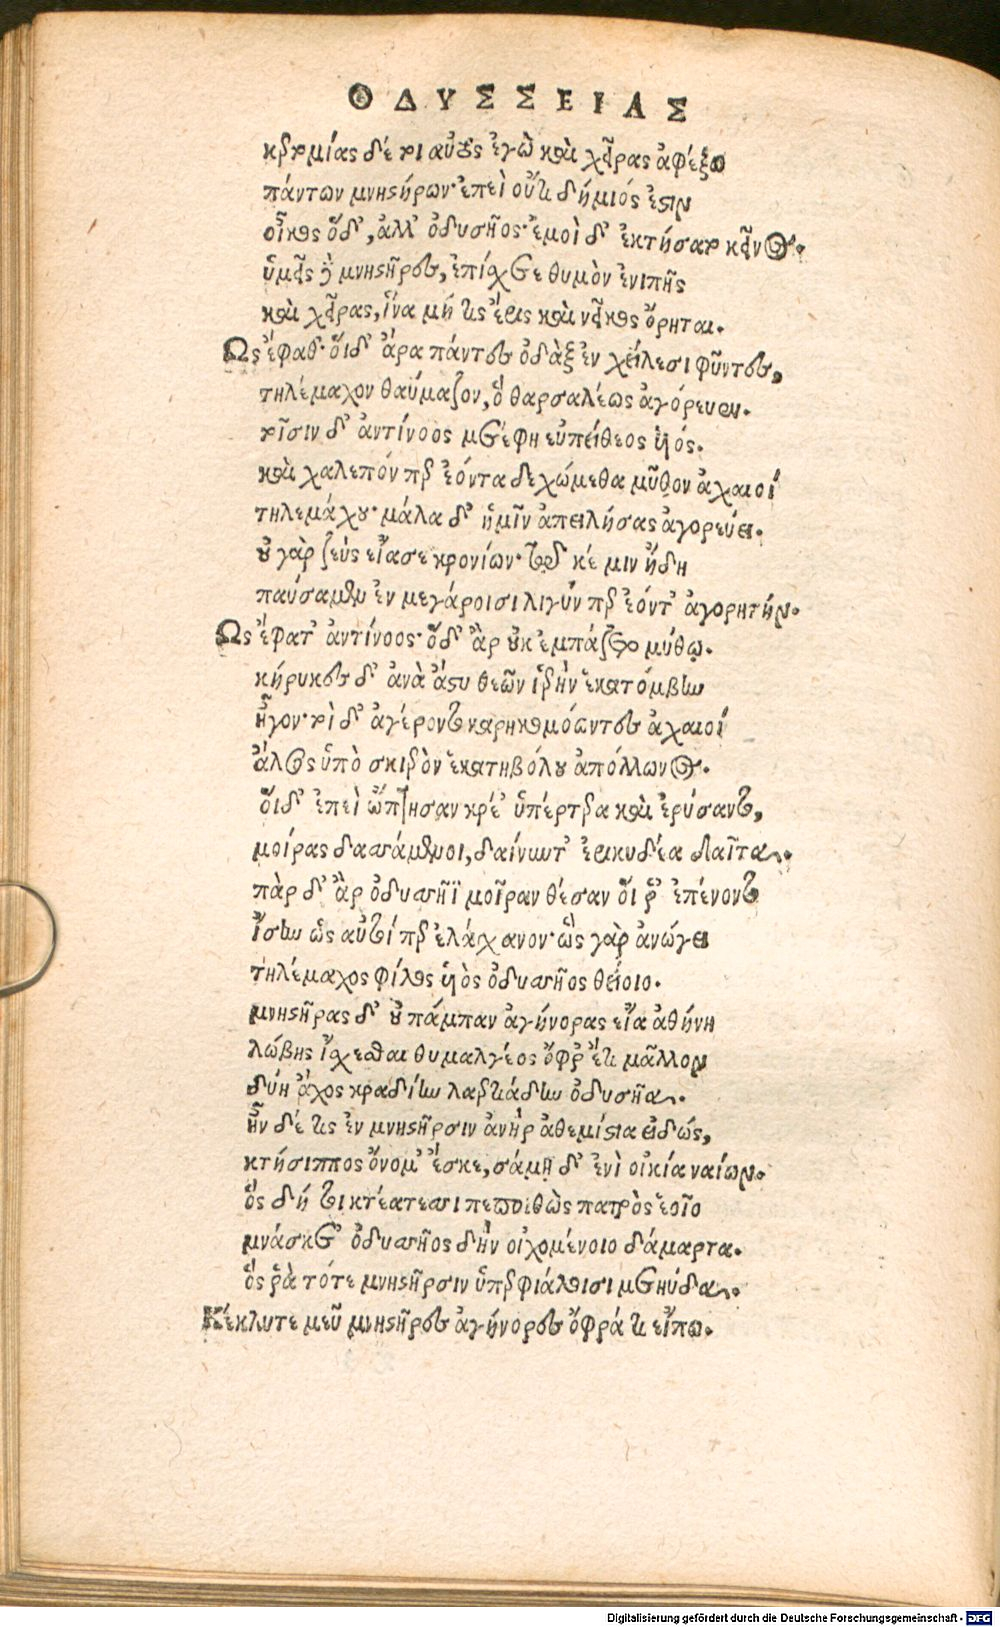 ΟΔΥΣΣΕΙΑΣ
κερτομίας δέ τοι αὐτὸς ἐγὼ καὶ χεῖρας ἀφέξω
πάντων μνηστήρων· ἐπεὶ οὔτι δήμιός ἐστιν
οἶκος ὅδ', ἀλλ' ὀδυσῆος· ἐμοὶ δ' ἐκτήσατο κεῖνος.
ὑμεῖς δὲ μνηστῆρες, ἐπίσχετε θυμὸν ἐνιπῆς
καὶ χεῖρας, ἵνα μή τις ἔρις καὶ νεῖκος ὄρηται.
Ως ἔφαθ'· οἱ δ' ἄρα πάντες ὀδὰξ ἐν χείλεσι φῦντες,
τηλέμαχον θαύμαζον, ὃ θαρσαλέως ἀγόρευεν.
τοῖσιν δ' ἀντίνοος μετέφη εὐπείθεος υἱός.
καὶ χαλεπόν περ ἐόντα δεχώμεθα μῦθον ἀχαιοί
τηλεμάχου· μάλα δ' ἡμῖν ἀπειλήσας ἀγορεύει.
οὐ γὰρ ζεὺς εἴασε κρονίων· τῷ κέ μιν ἤδη
παύσαμεν ἐν μεγάροισι λιγύν περ ἐόντ' ἀγορητήν.
Ως ἔφατ' ἀντίνοος· ὁ δ' ἂρ οὐκ ἐμπάζετο μύθων.
κήρυκες δ' ἀνὰ ἄστυ θεῶν ἱερὴν ἑκατόμβην
ἦγον· τοὶ δ' ἀγέροντο καρηκομόωντες ἀχαιοί
ἄλσος ὑπὸ σκιερὸν ἑκατηβόλου ἀπόλλωνος.
οἱ δ' ἐπεὶ ὤπτησαν κρέ' ὑπέρτερα καὶ ἐρύσαντο,
μοίρας δασσάμενοι, δαίνυντ' ἐρικυδέα δαῖτα.
πὰρ δ' ἂρ ὀδυσσῆϊ μοῖραν θέσαν οἵ ῥ' ἐπένοντο
ἴσην ὡς αὐτοί περ ἐλάγχανον· ὣς γὰρ ἀνώγει
τηλέμαχος φίλος υἱὸς ὀδυσσῆος θείοιο.
μνηστῆρας δ' οὐ πάμπαν ἀγήνορας εἴα ἀθήνη
λώβης ἴσχεσθαι θυμαλγέος ὄφρ' ἔτι μᾶλλον
δύῃ ἄχος κραδίην λαερτιάδην ὀδυσῆα.
ἦν δέ τις ἐν μνηστῆρσιν ἀνὴρ ἀθεμίστια εἰδώς,
κτήσιππος ὄνομ' ἔσκε, σάμῃ δ' ἐνὶ οἰκία ναίων.
ὃς δή τοι κτεάτεσσι πεποιθὼς πατρὸς ἑοῖο
μνάσκετ' ὀδυσσῆος δὴν οἰχομένοιο δάμαρτα.
ὅς ῥα τότε μνηστῆρσιν ὑπερφιάλοισι μετηύδα.
Κέκλυτε μεῦ μνηστῆρες ἀγήνορες ὄφρά τι εἴπω.
Digitalisierung gefördert durch die Deutsche Forschungsgemeinschaft - DFG